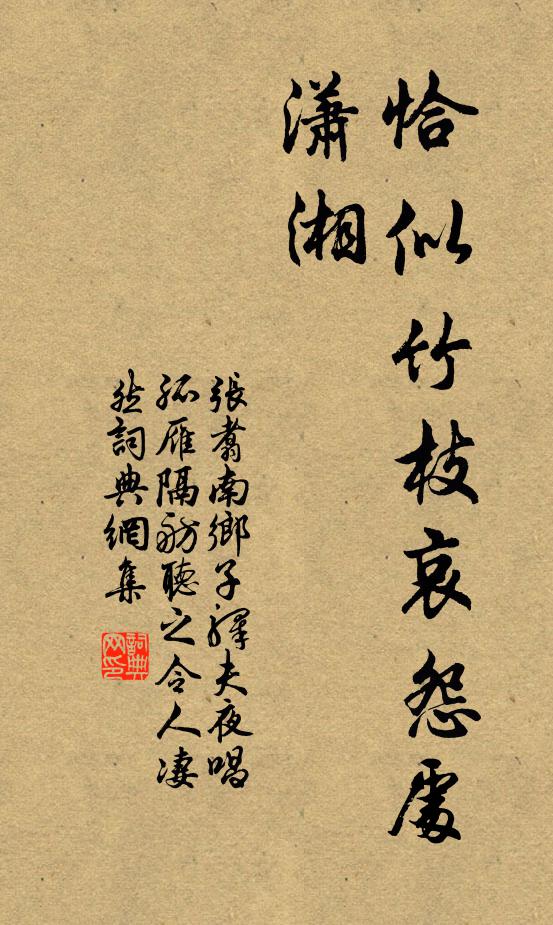 恰似竹枝哀怨處
瀟湘
張翥南鄉子驛夫夜唱
孤雁隔舫聽之令人淒
然詞典網集
詞典
网印